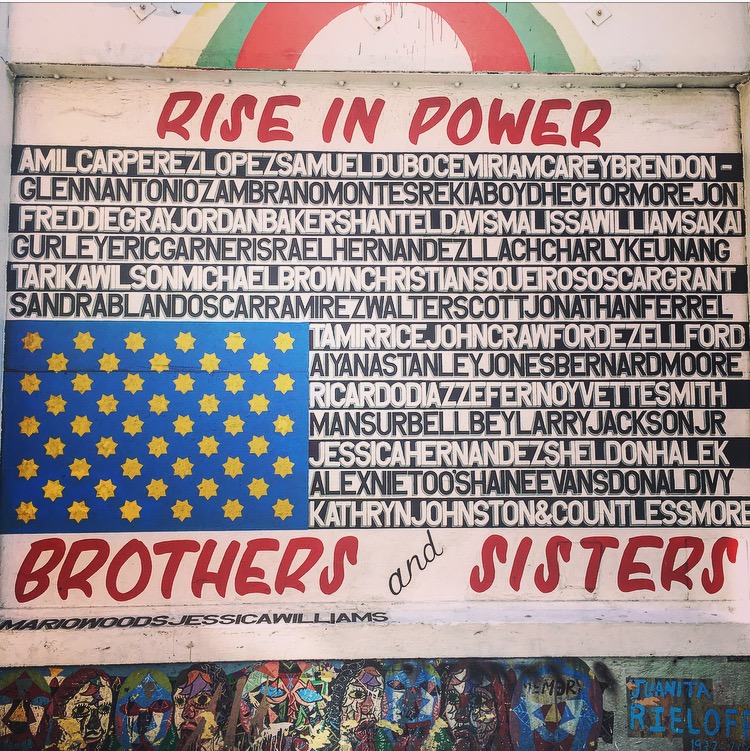 RISE IN POWER
AMILCARPEREZLOPEZSAMUELDUBOCEMIRIAMCAREYBRENDON-
GLENNANTONIOZAMBRANOMONTESREKIABOYDHECTORMOREJON
FREDDIEGRAYJORDANBAKERSHANTELDAVISMALISSAWILLIAMSAKAI
GURLEYERICGARNERISRAELHERNANDEZLLACHCHARLYKEUNANG
TARIKAWILSONMICHAELBROWNCHRISTIANSIQUEIROSOSCARGRANT
SANDRABLANDOSCARRAMIREZWALTERSCOTTJONATHANFERREL
TAMIRRICEJOHNCRAWFORDEZELLFORD
AIYANASTANLEYJONESBERNARDMOORE
RICARDODIAZZEFERINOYVETTESMITH
MANSURBELLBEYLARRYJACKSONJR
JESSICAHERNANDEZSHELDONHALEK
ALEXNIETOO'SHAINEEVANSDONALDIVY
KATHRYNJOHNSTON&COUNTLESSMORE
BROTHERS and SISTERS
MARIOWOODSJESSICAWILLIAMS
JUANITA
RIELOF